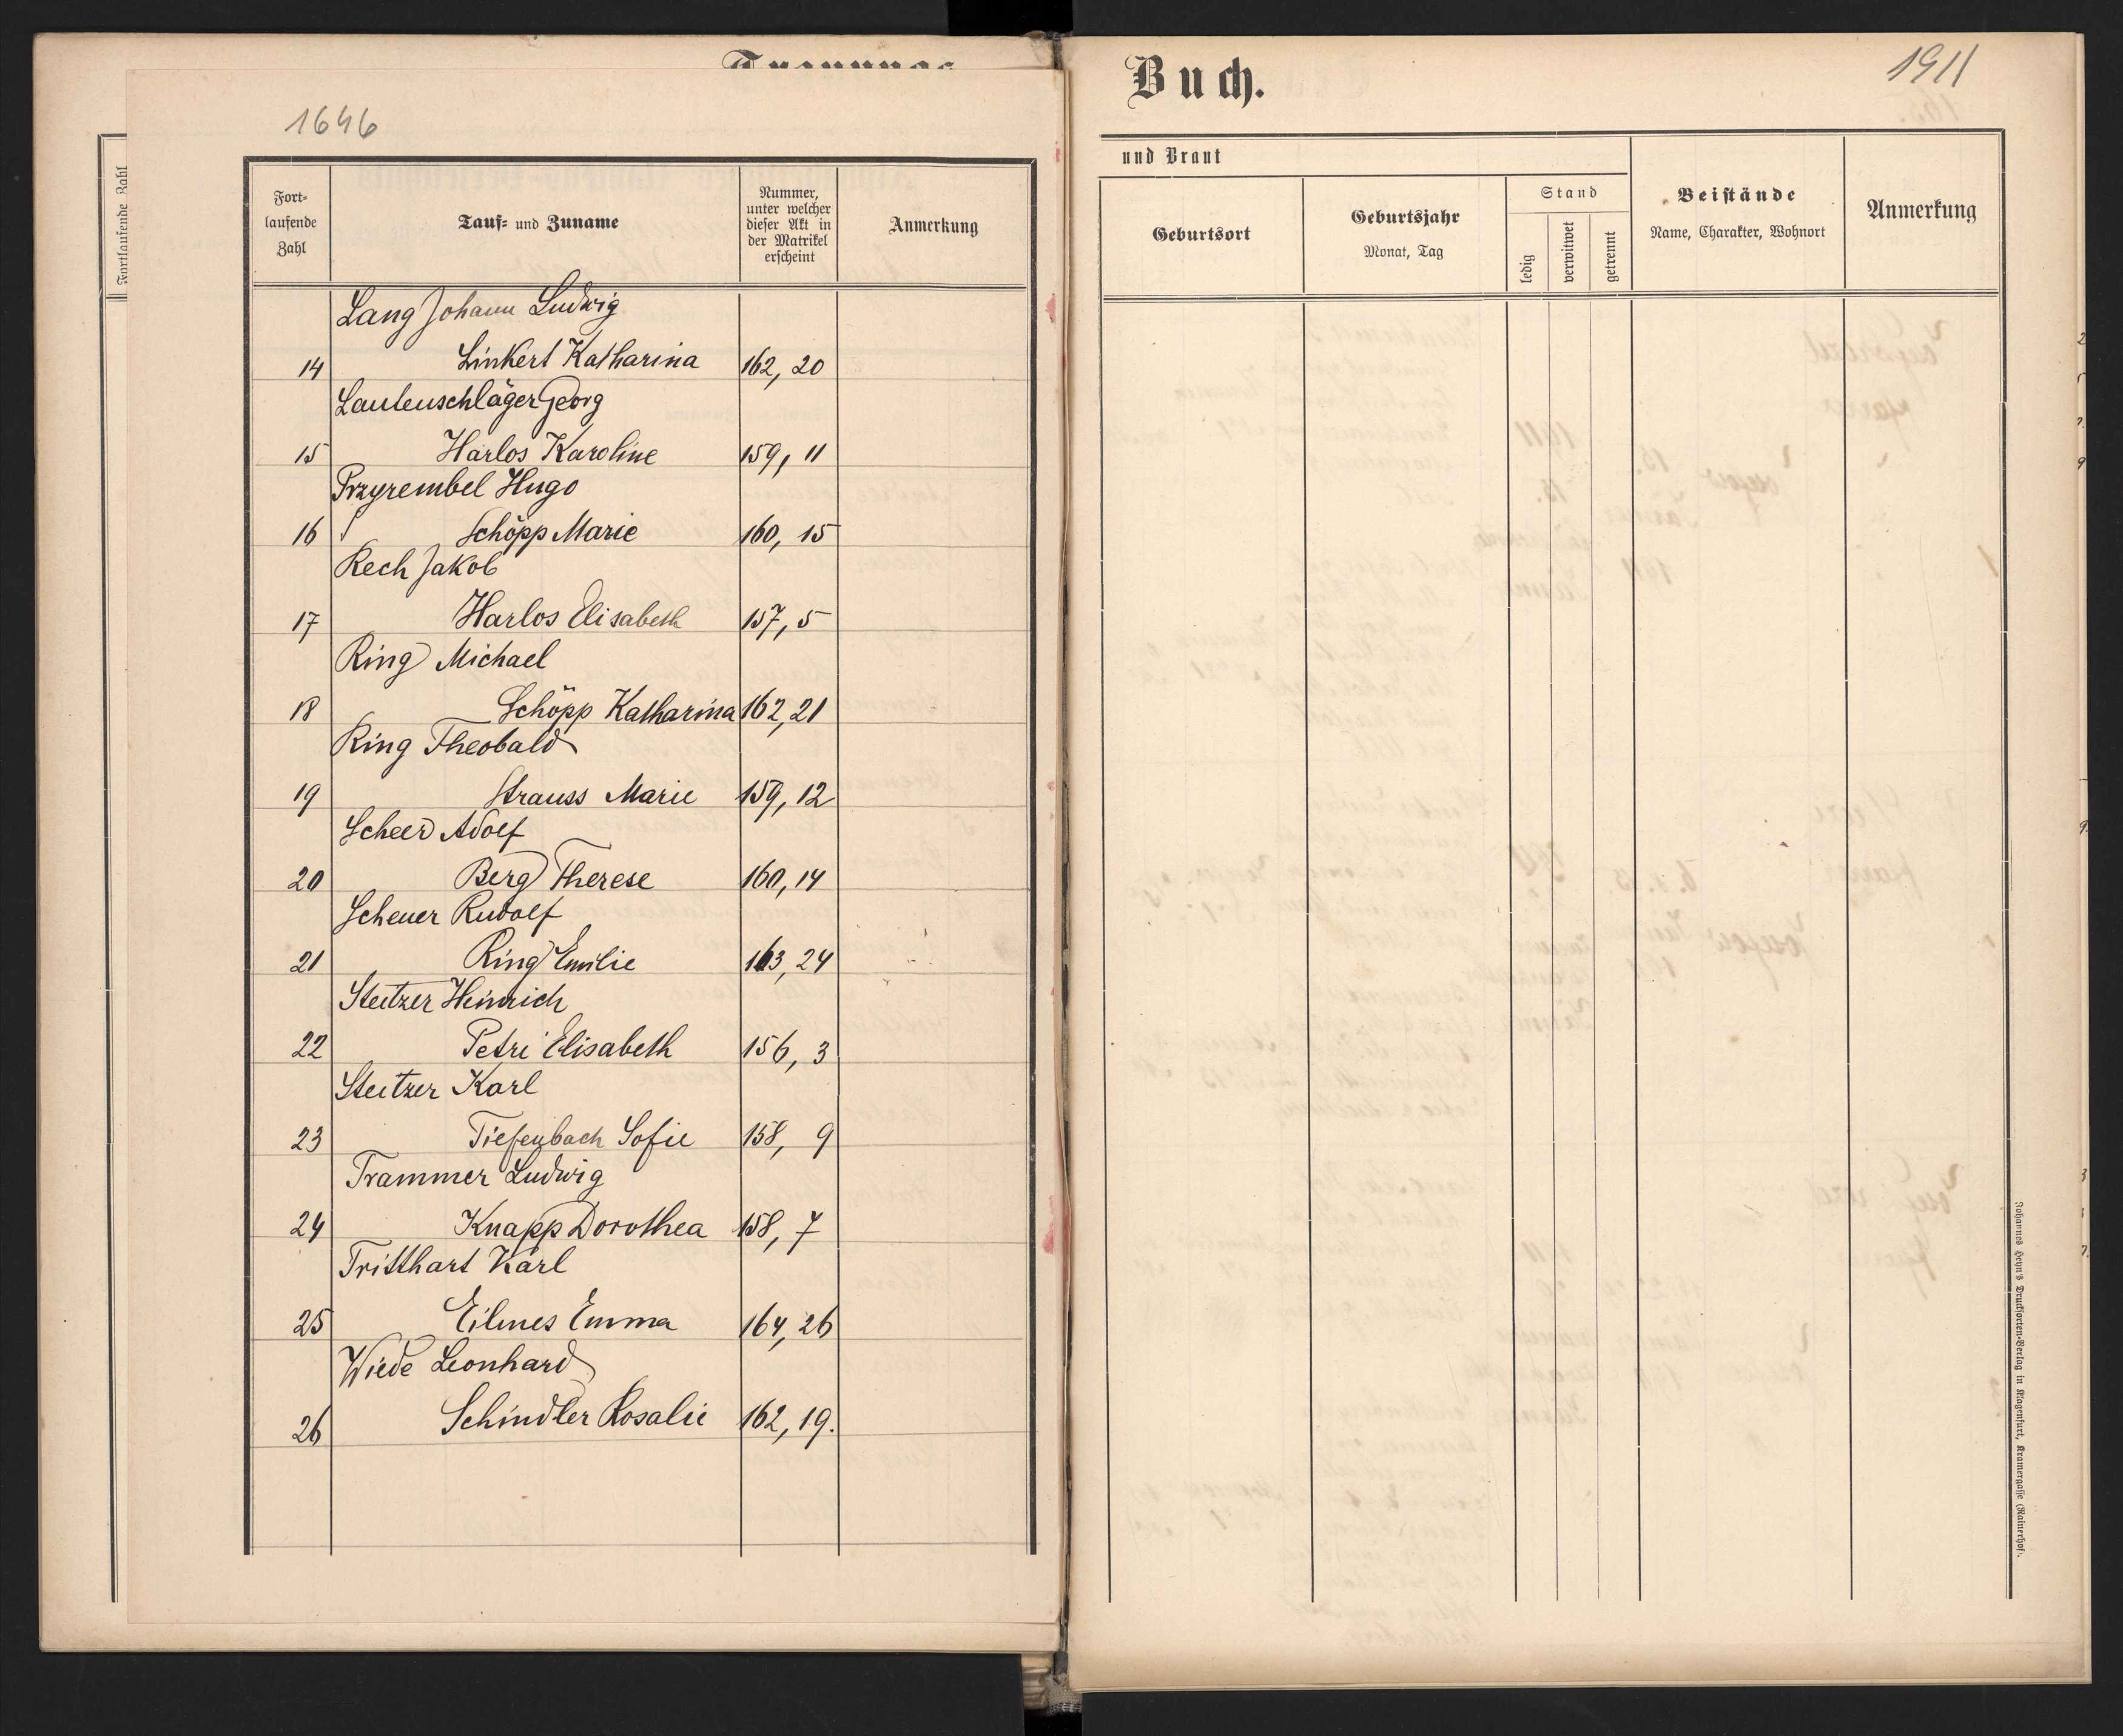 1646
Fort-
laufende
Zahl
Tauf- und Zuname
Nummer,
unter welcher
dieser Akt in
der Matrikel
erscheint
Anmerkung
Lang Johann Ludwig
14 Linkert Katharina 162, 20
Lautenschläger Georg
15 Harlos Karoline 159, 11
Przyrembel Hugo
16 Schöpp Marie 160, 15
Rech Jakob
17 Harlos Elisabeth 157, 5
Ring Michael
18 Schöpp Katharina 162, 21
Ring Theobald
19 Strauss Marie 159, 12
Scheer Adolf
20 Berg Therese 160, 14
Scheuer Rudolf
21 Ring Emilie 163, 24
Steitzer Heinrich
22 Petri Elisabeth 156, 3
Steitzer Karl
23 Tiefenbach Sofie 158, 9
Trammer Ludwig
24 Knapp Dorothea 158, 7
Tritthart Karl
25 Eilmes Emma 164, 26
Wiede Leonhard
26 Schindler Rosalie 162, 19.
Fortlaufende Zahl
Buch.
1911
und Braut
Geburtsort
Geburtsjahr
Monat, Tag
Stand
ledig
verwitwet
getrennt
Beistände
Name, Charakter, Wohnort
Anmerkung
Johannes Heyn's Drucksorten-Verlag in Klagenfurt, Kramergasse (Rainerhof).